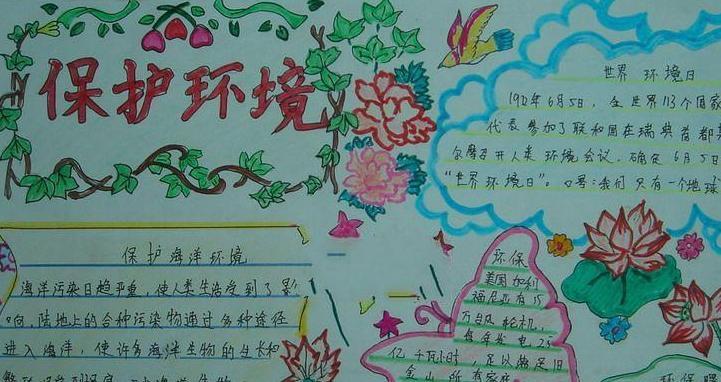 保护环境
世界 环境日
1972年6月5日，全世界113个国家
代表参加了联和国在瑞典首都
尔摩召开人类环境会议，确定6月5日
“世界环境日”。口号：我们只有一个地球
保护海洋环境
海洋污染日趋严重，使人类生活受到了影
响，陆地上的各种污染物通过多种途径
进入海洋，使许多海洋生物的生长和
环保
美国加利
福尼亚有15
万台风轮机，
每年发电25
亿千瓦小时，足以满足旧
金山所有家庭
环保